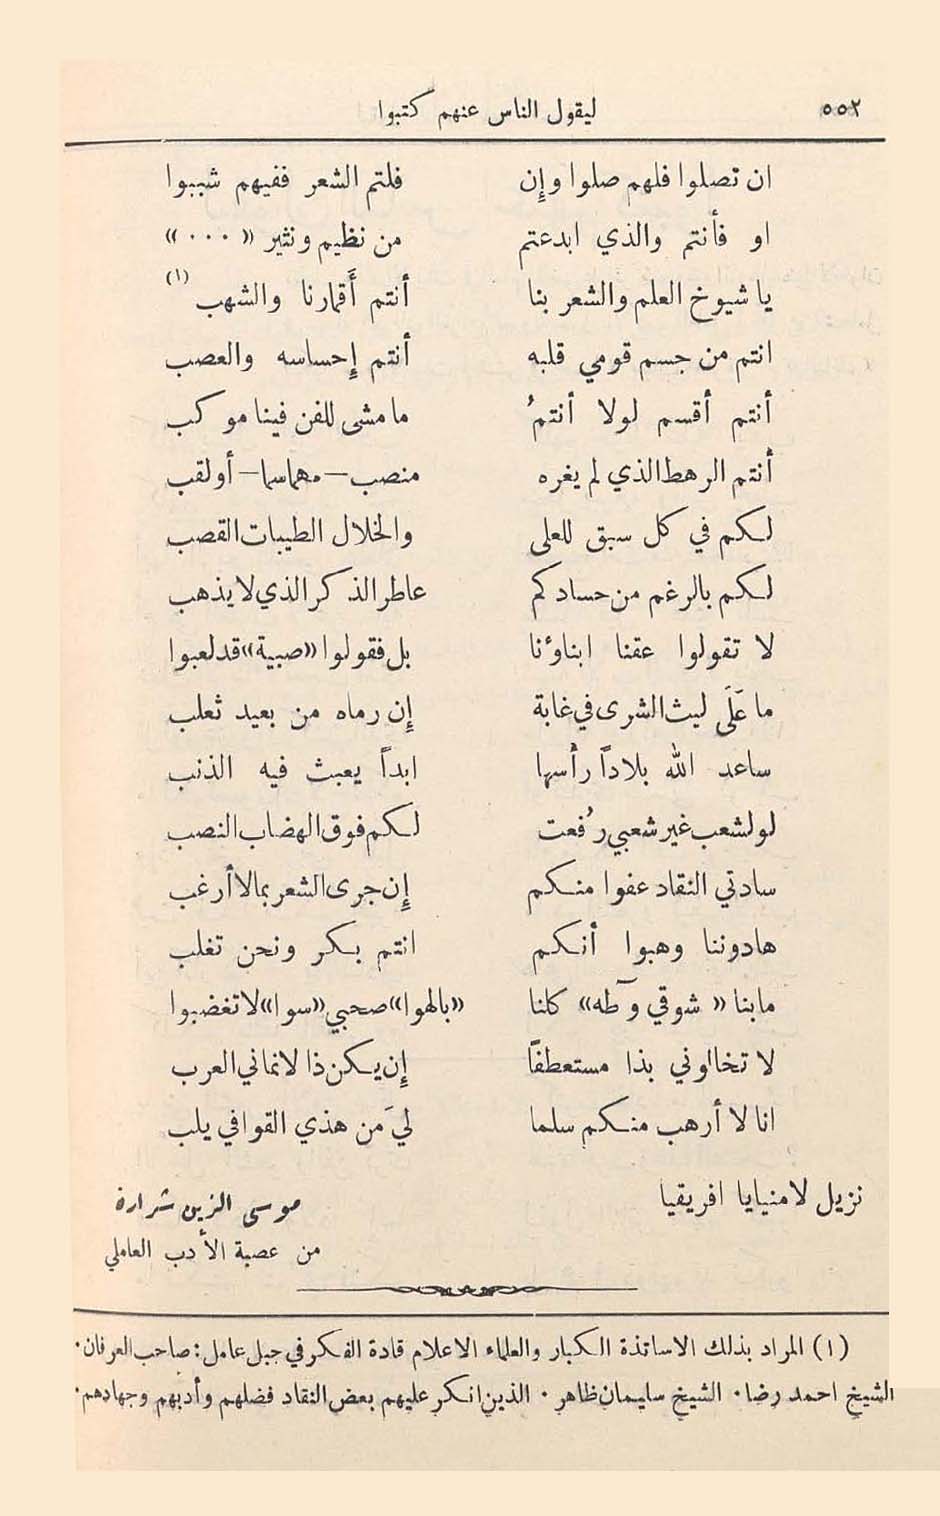 ٥٥٢ ليقول الناس عنهم كتبوا
ان تصلوا فلهم صلوا وإن فلتم الشعر ففيهم شببوا
او فأنتم والذي ابدعتم من نظيم ونثير « ٠٠٠ »
يا شيوخ العلم والشعر بنا أنتم أَقمارنا والشهب (١)
انتم من جسم قومي قلبه أنتم إحساسه والعصب
أنتم أقسم لولا أنتمُ ما مشى للفن فينا موكب
أنتم الرهط الذي لم يغره منصب – مهما سما – أو لقب
لكم في كل سبق للعلى والخلال الطيبات القصب
لكم بالرغم من حسادكم عاطر الذكر الذي لا يذهب
لا تقولوا عقنا ابناؤنا بل فقولوا «صبية» قد لعبوا
ما عَلَى ليث الشرى في غابة إن رماه من بعيد ثعلب
ساعد الله بلاداً رأسها ابداً يعبث فيه الذنب
لو لشعب غير شعبي رُفعت لكم فوق الهضاب النصب
سادتي النقاد عفوا منكم إن جرى الشعر بما لا أرغب
هادوننا وهبوا أنكم انتم بكر ونحن تغلب
ما بنا « شوقي وطه » كلنا «بالهوا» صحبي «سوا» لا تغضبوا
لا تخالوني بذا مستعطفاً إن يكن ذا لا نماني العرب
انا لا أرهب منكم سلما لي مَن هذي القوافي يلب
نزيل لامنيايا افريقيا موسى الزين شرارة
من عصبة الأدب العاملي
(١) المراد بذلك الاساتذة الكبار والعلماء الاعلام قادة الفكر في جبل عامل : صاحب العرفان٠
الشيخ احمد رضا٠ الشيخ سليمان ظاهر ٠ الذين انكر عليهم بعض النقاد فضلهم وأدبهم وجهادهم٠